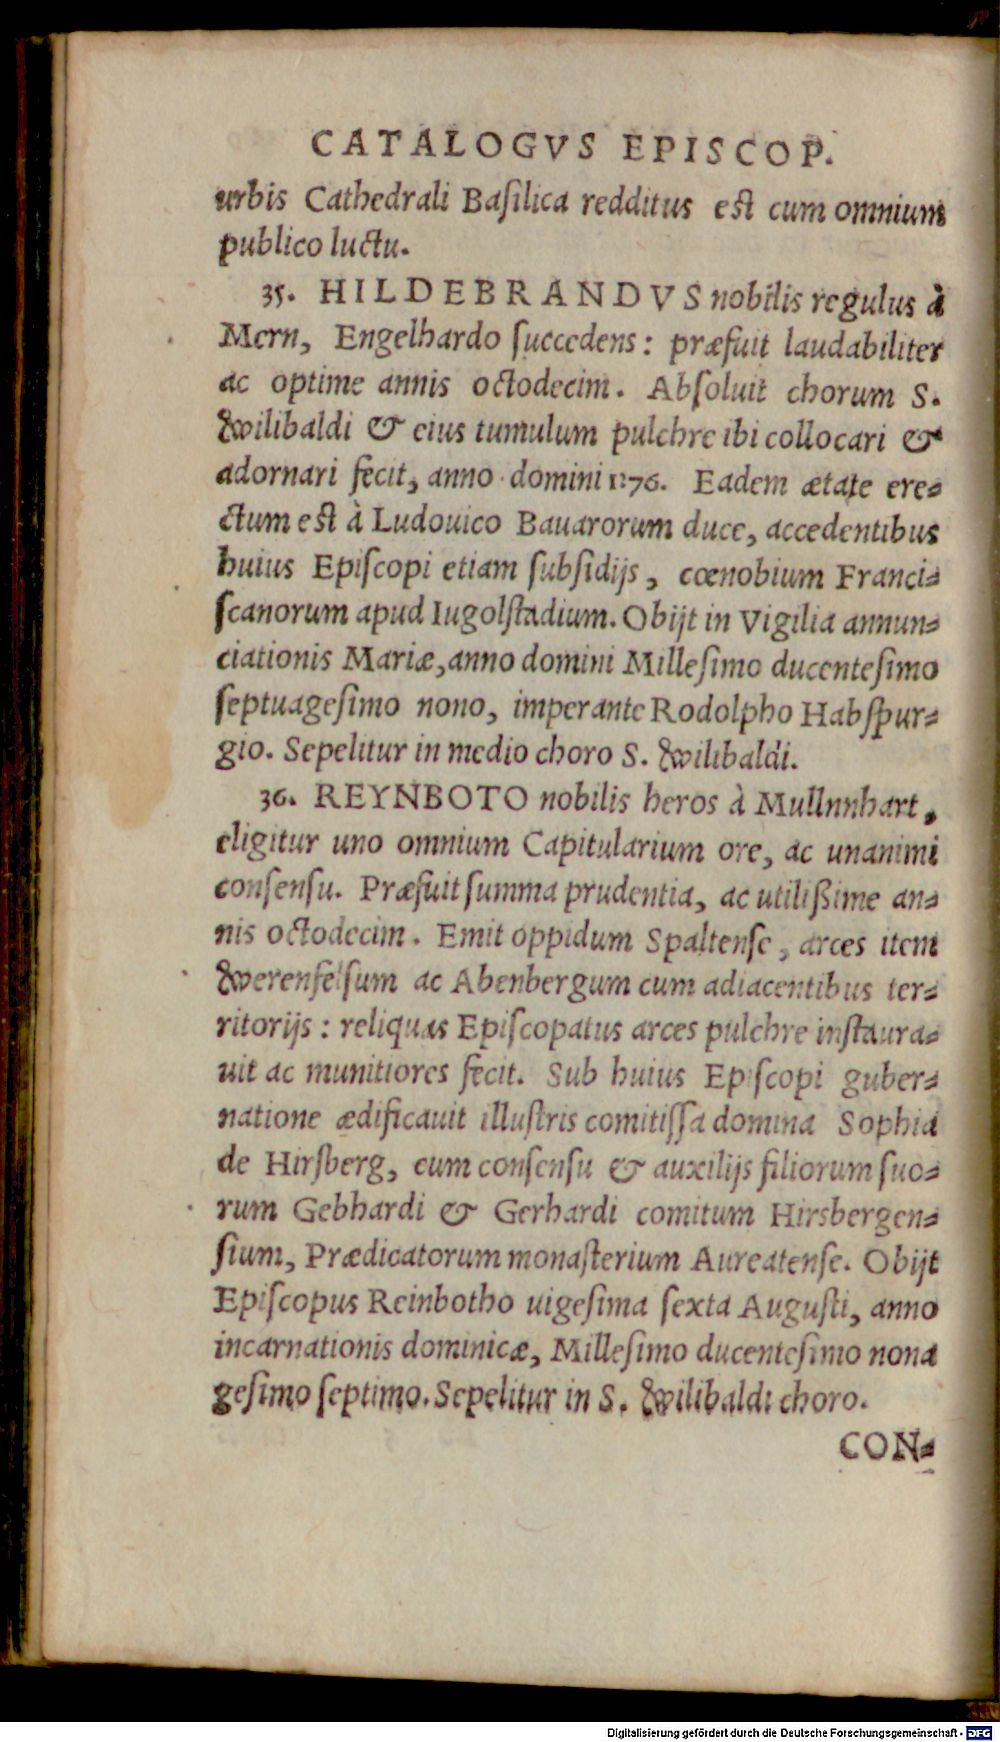 CATALOGVS EPISCOP.
urbis Cathedrali Baſilica redditus eſt cum omnium
publico luctu.
35. HILDEBRANDVS nobilis regulus à
Mern, Engelhardo ſuccedens: præfuit laudabiliter
ac optime annis octodecim. Abſoluit chorum S.
Wilibaldi & eius tumulum pulchre ibi collocari &
adornari fecit, anno domini 1276. Eadem ætate ere-
ctum eſt à Ludouico Bauarorum duce, accedentibus
huius Epiſcopi etiam ſubſidijs, cœnobium Franci-
ſcanorum apud Iugolſtadium. Obijt in Vigilia annun-
ciationis Mariæ, anno domini Milleſimo ducenteſimo
ſeptuageſimo nono, imperante Rodolpho Habſpur-
gio. Sepelitur in medio choro S. Wilibaldi.
36. REYNBOTO nobilis heros à Mullnnhart,
eligitur uno omnium Capitularium ore, ac unanimi
conſenſu. Præfuit ſumma prudentia, ac utilißime an-
nis octodecim. Emit oppidum Spaltenſe, arces item
Werenfelſum ac Abenbergum cum adiacentibus ter-
ritorijs: reliquas Epiſcopatus arces pulchre inſtaura-
uit ac munitiores fecit. Sub huius Epiſcopi guber-
natione ædificauit illuſtris comitiſſa domina Sophia
de Hirſberg, cum conſenſu & auxilijs filiorum ſuo-
rum Gebhardi & Gerhardi comitum Hirsbergen-
ſium, Prædicatorum monaſterium Aureatenſe. Obijt
Epiſcopus Reinbotho uigeſima ſexta Auguſti, anno
incarnationis dominicæ, Milleſimo ducenteſimo nona
geſimo ſeptimo. Sepelitur in S. Wilibaldi choro.
CON-
Digitalisierung gefördert durch die Deutsche Forschungsgemeinschaft - DFG